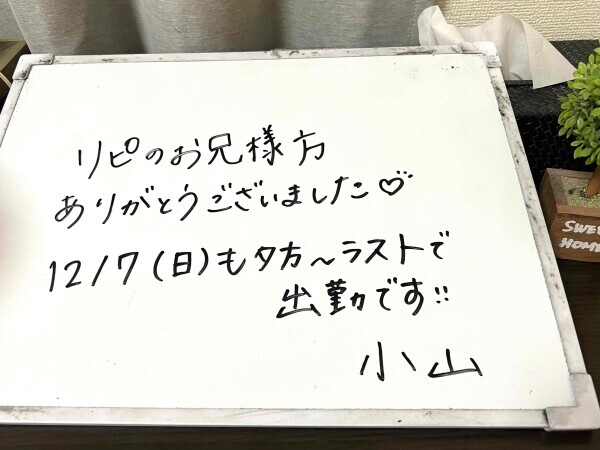 リピのお兄様方
ありがとうございました♡
12/7(日)も夕方～ラストで
出勤です!!
小山
SWEE
HOME